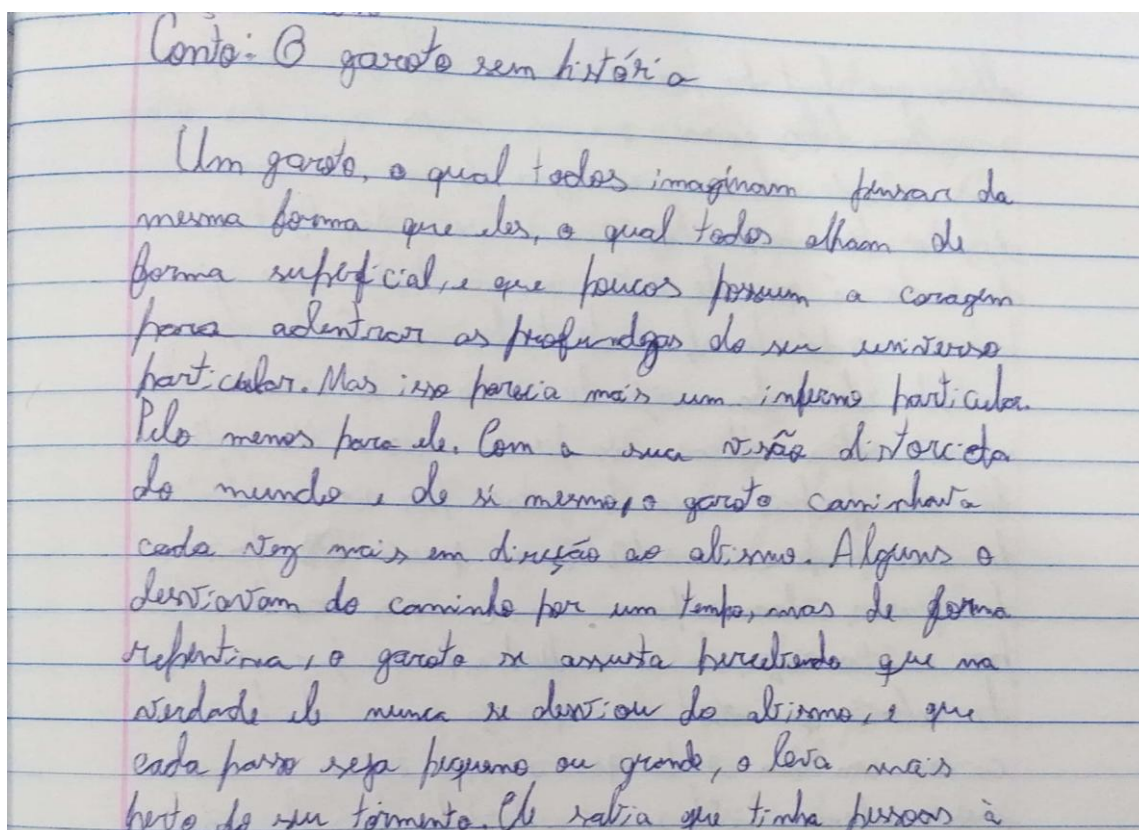 Conto: O garoto sem história
Um garoto, o qual todos imaginam pensar da
mesma forma que eles, o qual todos olham de
forma superficial, e que poucos possuem a coragem
para adentrar as profundezas do seu universo
particular. Mas isso parecia mais um inferno particular.
Pelo menos para ele. Com a sua visão distorcida
do mundo e de si mesmo, o garoto caminhava
cada vez mais em direção ao abismo. Alguns o
desviavam do caminho por um tempo, mas de forma
repentina, o garoto se assusta percebendo que na
verdade ele nunca se desviou do abismo, e que
cada passo seja pequeno ou grande, o leva mais
perto do seu tormento. Ele sabia que tinha pessoas à